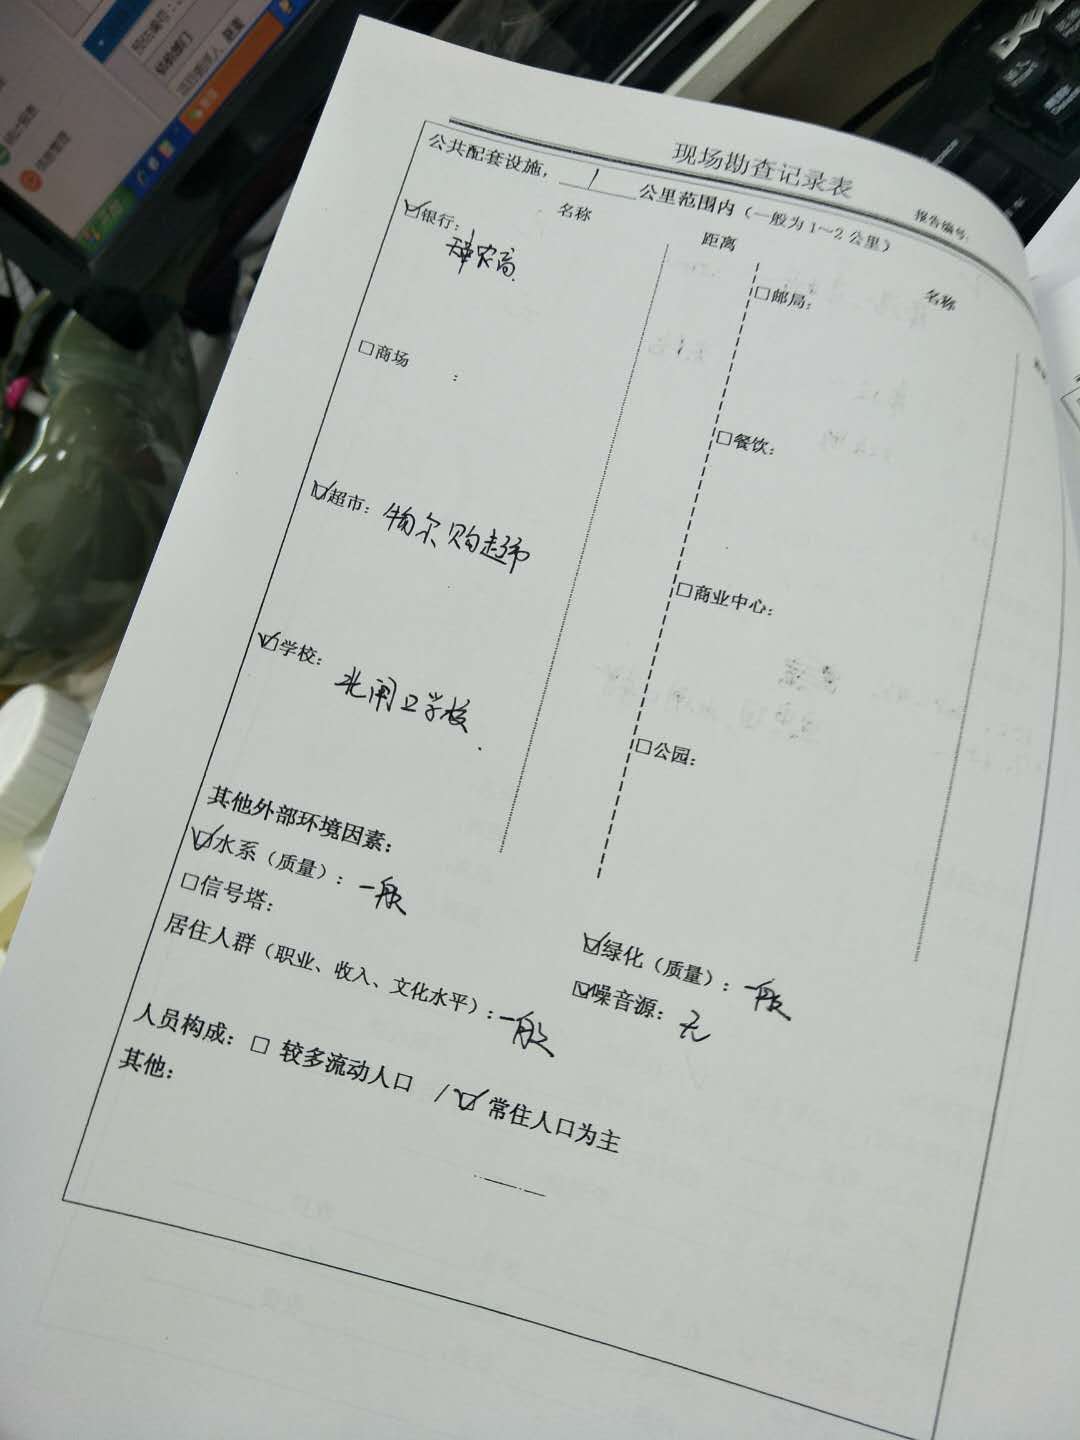 现场勘查记录表
报告编号:
公共配套设施, 1 公里范围内（一般为1～2公里）
名称 距离 名称
☑银行: 天津农商
□邮局:
□商场 :
□餐饮:
☑超市: 物尔购超市
□商业中心:
☑学校: 北闸卫学校
□公园:
其他外部环境因素:
☑水系（质量）: 一般 ☑绿化（质量）: 一般
□信号塔: ☑噪音源: 无
居住人群（职业、收入、文化水平）: 一般
人员构成: □ 较多流动人口 / ☑ 常住人口为主
其他:
DELL